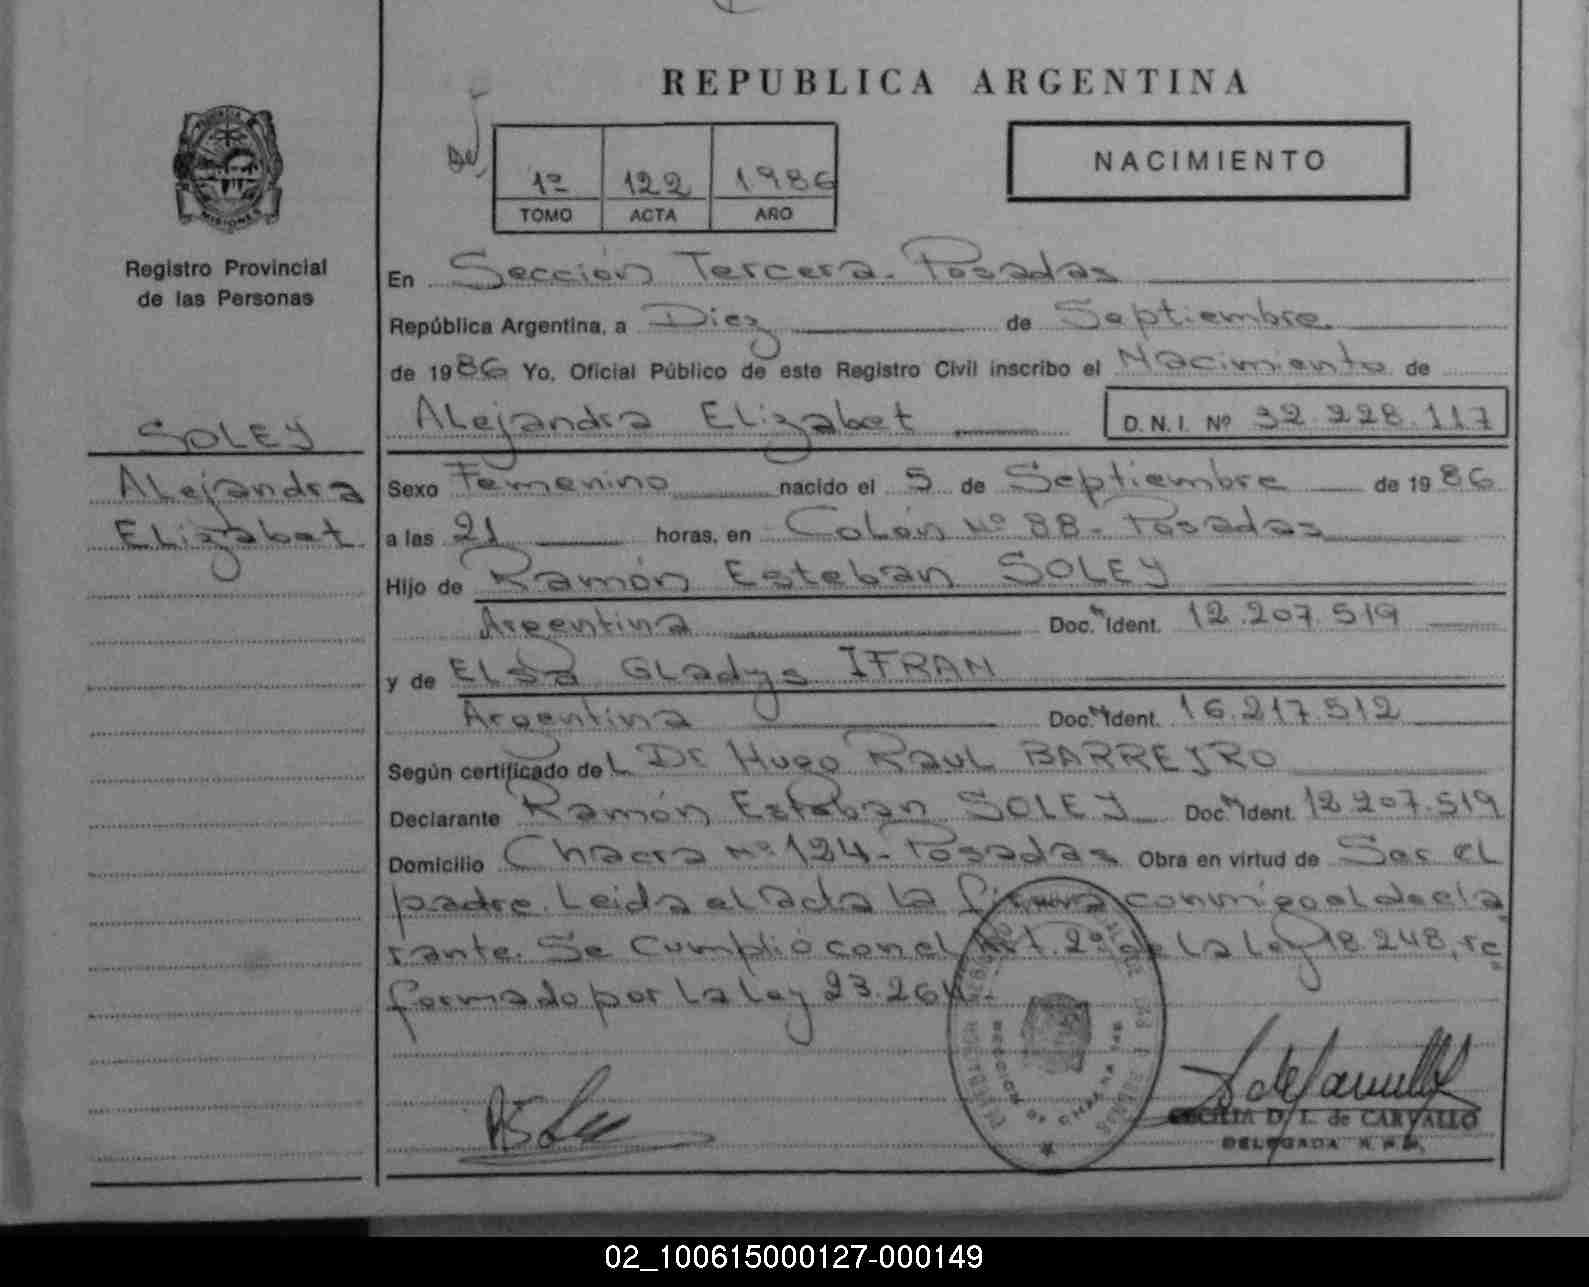 REPUBLICA ARGENTINA
1º 122 1986
TOMO ACTA AÑO
NACIMIENTO
MISIONES
Registro Provincial
de las Personas
SOLEY
Alejandra
Elizabet
En Sección Tercera - Posadas
República Argentina, a Diez de Septiembre
de 1986 Yo, Oficial Público de este Registro Civil inscribo el Nacimiento de
Alejandra Elizabet D.N.I. Nº 32.228.117
Sexo Femenino nacido el 5 de Septiembre de 1986
a las 21 horas, en Colón Nº 88 - Posadas
Hijo de Ramón Esteban SOLEY
Argentina Doc. Ident. 12.207.519
y de Elsa Gladys IFRAN
Argentina Doc. Ident. 16.217.512
Según certificado del Dr Hugo Raul BARREIRO
Declarante Ramón Esteban SOLEY Doc. Ident. 12.207.519
Domicilio Chacra Nº 124 - Posadas Obra en virtud de Ser el
padre. Leida el acta la firma conmigo el decla
rante. Se cumplió con el Art. 2º de la Ley 18.248, re
formado por la Ley 23.264.-
CECILIA D. L. de CARVALLO
DELEGADA R.P.P.
02_100615000127-000149